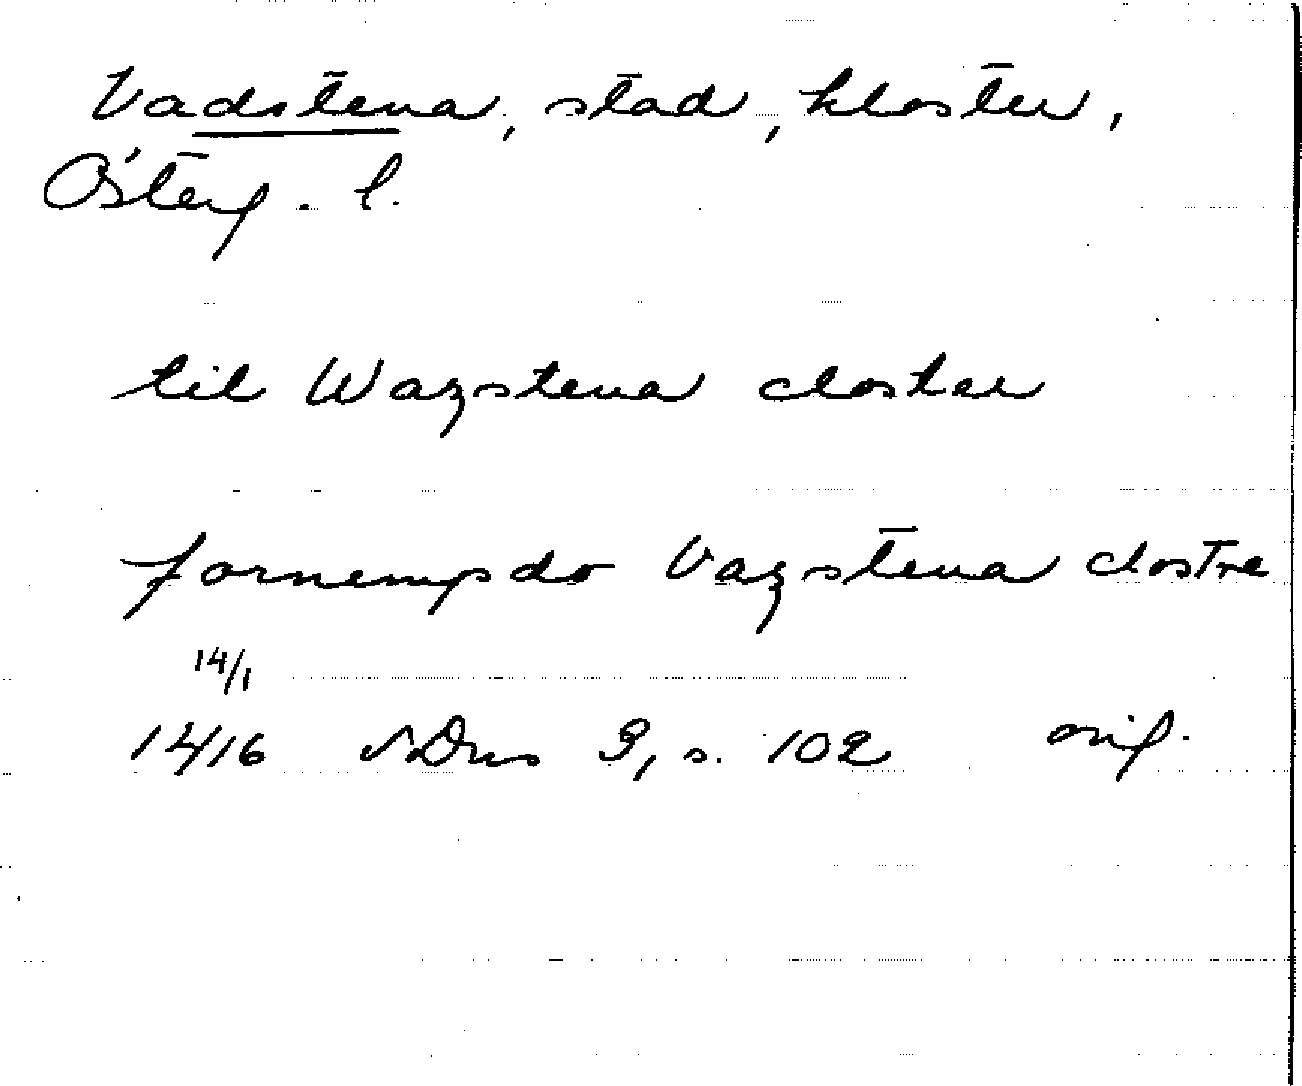 Vadstena, stad, kloster,
Österg. l.
til Wazstena closter
fornempdo Vazstena clostre
14/1
1416 SDns 3, s. 102 orig.